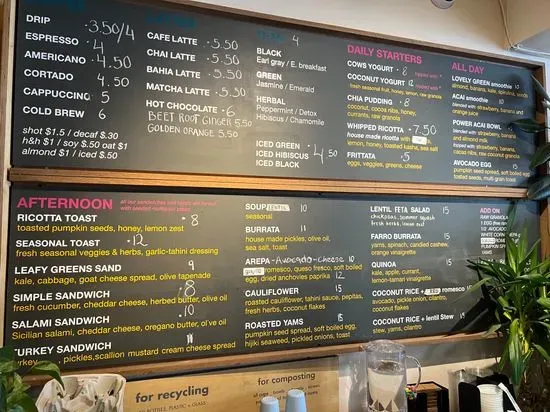 DRIP 3.50/4
ESPRESSO 4
AMERICANO 4.50
CORTADO 4.50
CAPPUCCINO 5
COLD BREW 6
shot $1.5 / decaf $.30
h&h $1 / soy $.50 oat $1
almond $1 / iced $.50
CAFE LATTE 5.50
CHAI LATTE 5.50
BAHIA LATTE 5.50
MATCHA LATTE 5.50
HOT CHOCOLATE 6
BEET ROOT GINGER 5.50
GOLDEN ORANGE 5.50
4
BLACK
Earl gray / E. breakfast
GREEN
Jasmine / Emerald
HERBAL
Peppermint / Detox
Hibiscus / Chamomile
ICED GREEN
ICED HIBISCUS 4.50
ICED BLACK
DAILY STARTERS
COWS YOGURT 8
COCONUT YOGURT 12
fresh seasonal fruit, honey, lemon, raw granola
CHIA PUDDING 8
coconut, cocoa nibs, honey,
currants, raw granola
WHIPPED RICOTTA 7.50
house made ricotta with
lemon, honey, toasted kasha, sea salt
FRITTATA 5
eggs, veggies, greens, cheese
ALL DAY
LOVELY GREEN smoothie 10
almond, banana, kale, spirulina, seeds
ACAI smoothie 10
almond, blended with strawberry, banana,
orange juice
POWER ACAI BOWL
blended with strawberry, banana
and almond milk
topped with strawberry, banana,
cacao nibs, raw coconut granola
AVOCADO EGG 15
pumpkin seed spread, soft boiled egg
toasted seeds, multi grain toast
AFTERNOON
all our sandwiches and toasts are served
with seeded multigrain bread
RICOTTA TOAST 8
toasted pumpkin seeds, honey, lemon zest
SEASONAL TOAST 12
fresh seasonal veggies & herbs, garlic-tahini dressing
LEAFY GREENS SAND 9
kale, cabbage, goat cheese spread, olive tapenade
SIMPLE SANDWICH 8
fresh cucumber, cheddar cheese, herbed butter, olive oil
SALAMI SANDWICH 10
Sicilian salami, cheddar cheese, oregano butter, olive oil
TURKEY SANDWICH 11
turkey, pickles, scallion mustard cream cheese spread
SOUP LENTIL 10
seasonal
BURRATA 11
house made pickles, olive oil,
sea salt, toast
AREPA -Avocado-Cheese 10
romesco, queso fresco, soft boiled
egg, dried anchovies paprika 12
CAULIFLOWER 15
roasted cauliflower, tahini sauce, pepitas,
fresh herbs, coconut flakes
ROASTED YAMS 15
pumpkin seed spread, soft boiled egg,
hijiki seaweed, pickled onions, toast
LENTIL FETA SALAD 15
chickpeas, summer squash
fresh herbs, lemon zest
FARRO BURRATA 15
yams, spinach, candied cashew,
orange vinaigrette
QUINOA 15
kale, apple, currant,
lemon-yogurt vinaigrette
COCONUT RICE + EGG romesco 15
avocado, pickle onion, cilantro,
coconut flakes
COCONUT RICE + lentil Stew 15
stew, yams, cilantro
ADD ON
RAW GRANOLA
for recycling
for composting